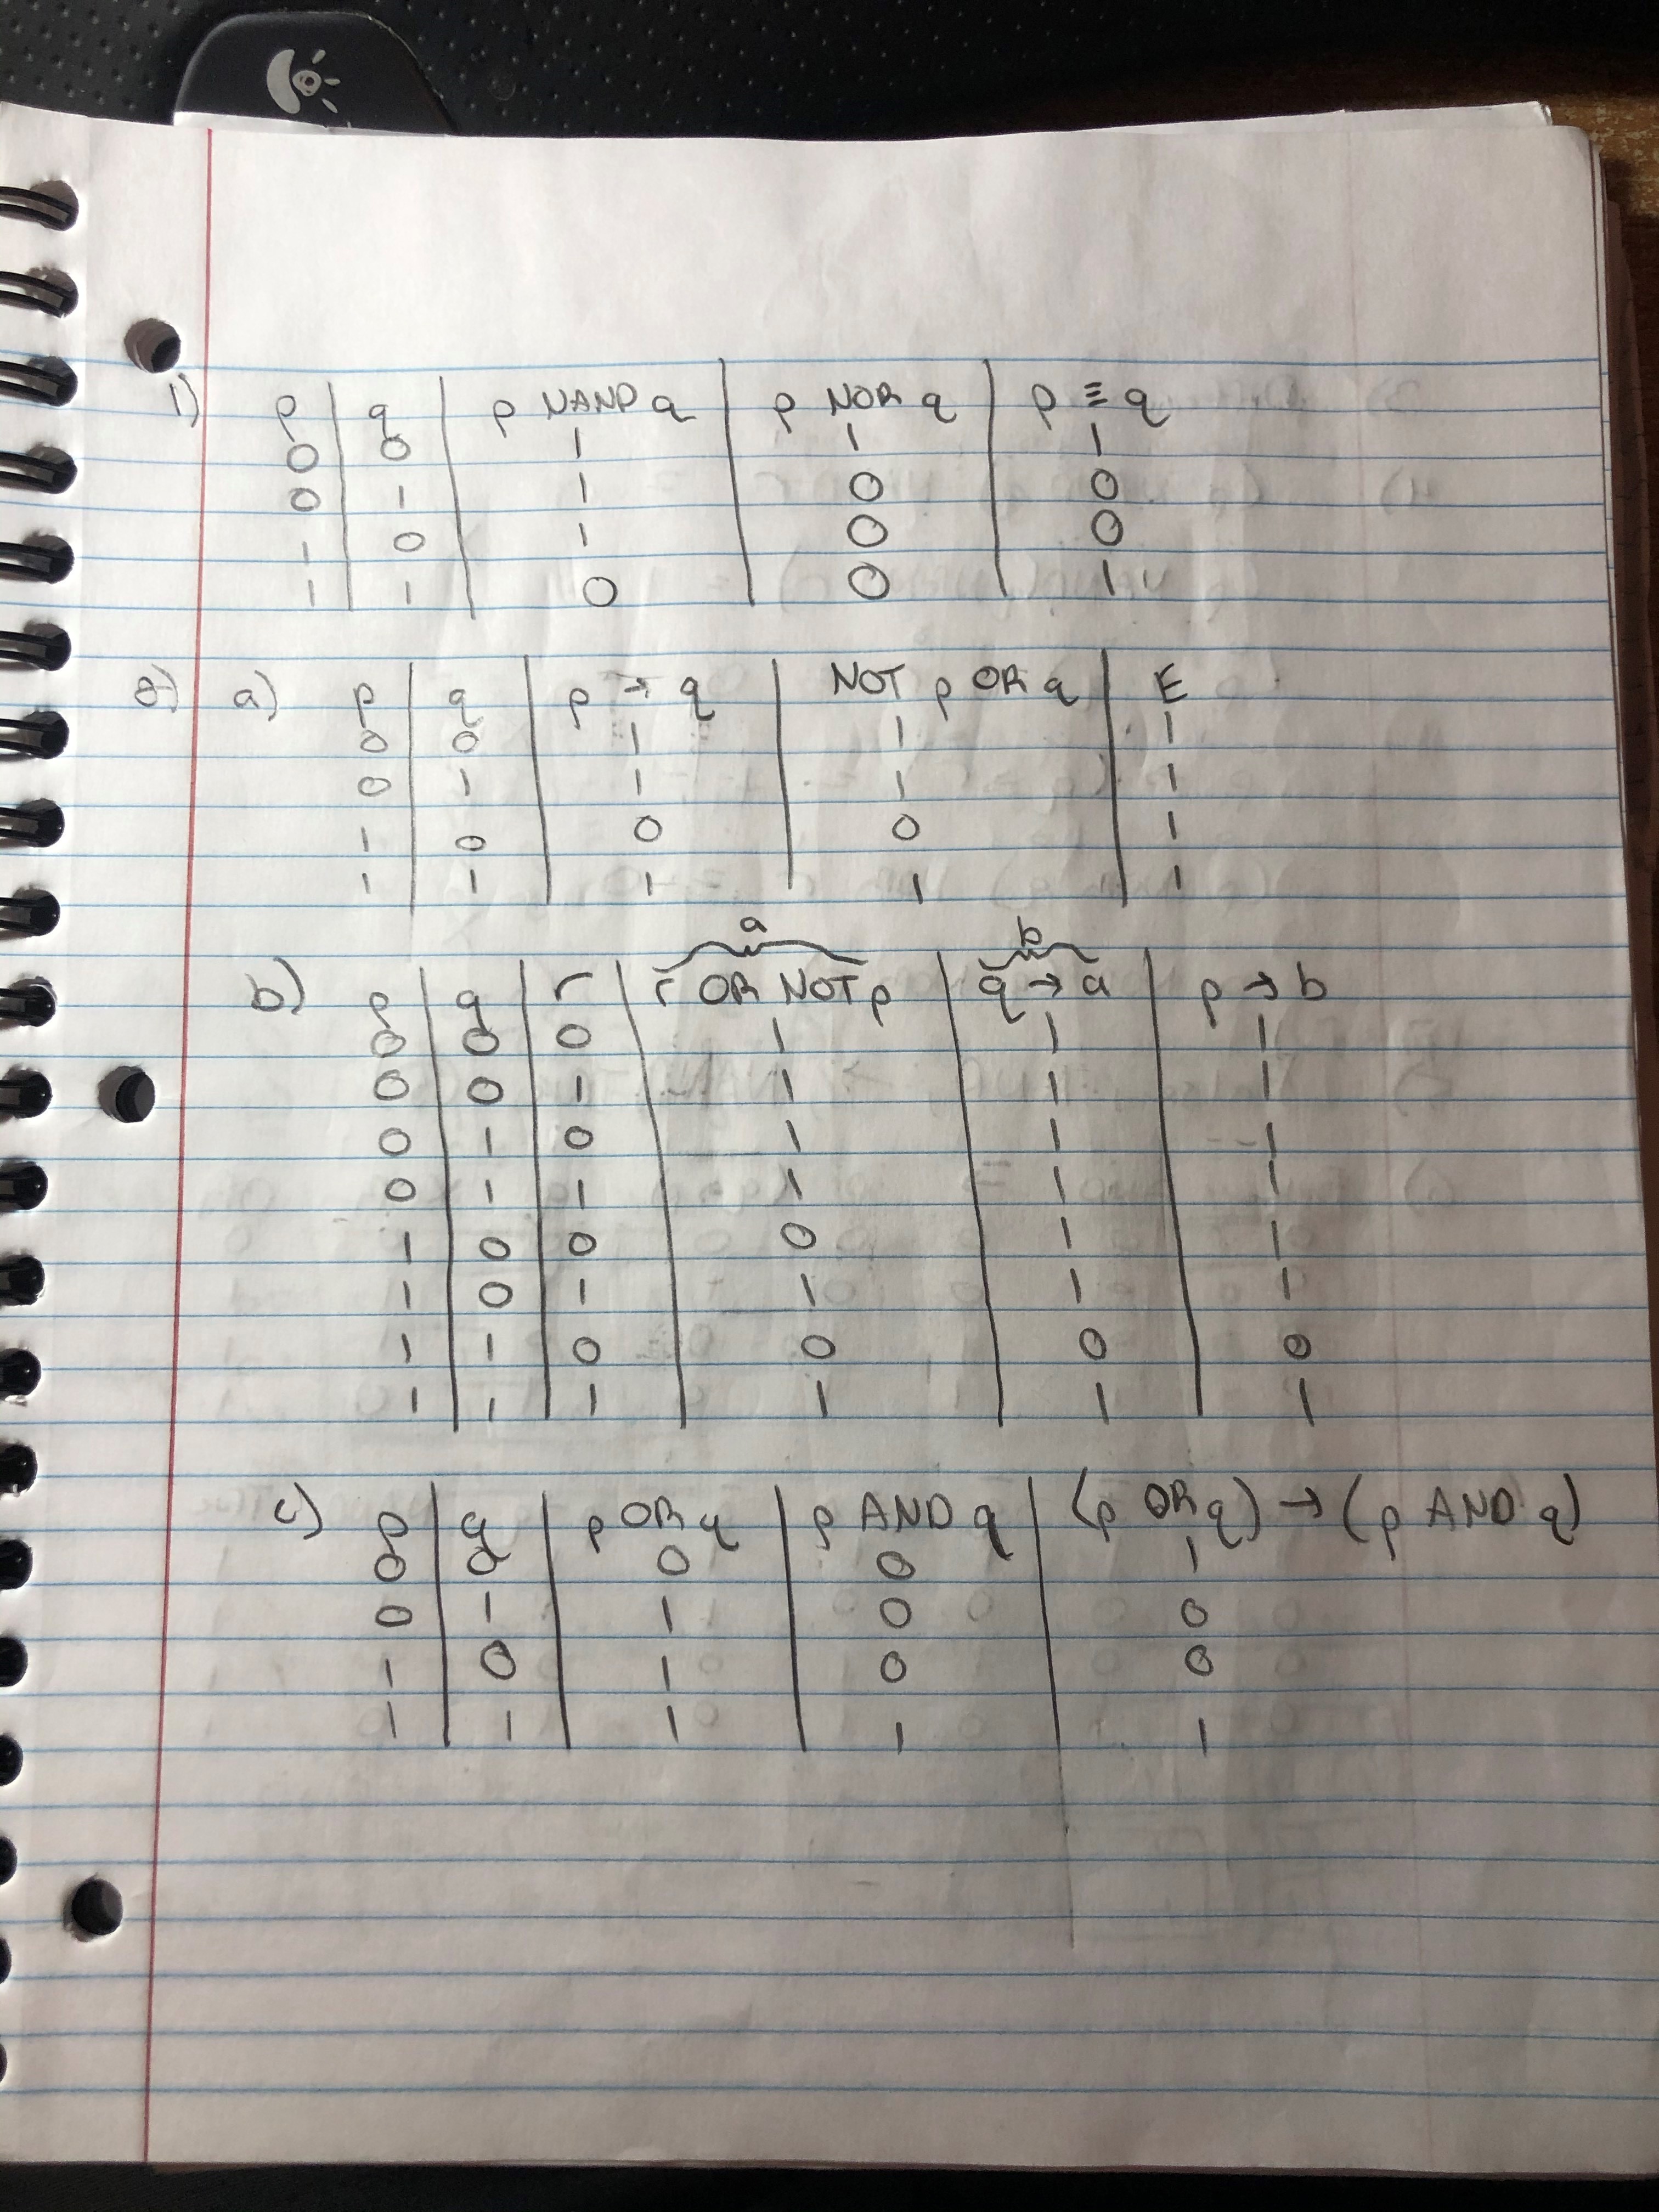 1) p | q | p NAND q | p NOR q | p ≡ q
0 | 0 | 1 | 1 | 1
0 | 1 | 1 | 0 | 0
1 | 0 | 1 | 0 | 0
1 | 1 | 0 | 0 | 1
2) a) p | q | p → q | NOT p OR q | E
0 | 0 | 1 | 1 | 1
0 | 1 | 1 | 1 | 1
1 | 0 | 0 | 0 | 1
1 | 1 | 1 | 1 | 1
a b
b) p | q | r | r OR NOT p | q → a | p → b
0 | 0 | 0 | 1 | 1 | 1
0 | 0 | 1 | 1 | 1 | 1
0 | 1 | 0 | 1 | 1 | 1
0 | 1 | 1 | 1 | 1 | 1
1 | 0 | 0 | 0 | 1 | 1
1 | 0 | 1 | 1 | 1 | 1
1 | 1 | 0 | 0 | 0 | 0
1 | 1 | 1 | 1 | 1 | 1
c) p | q | p OR q | p AND q | (p OR q) → (p AND q)
0 | 0 | 0 | 0 | 1
0 | 1 | 1 | 0 | 0
1 | 0 | 1 | 0 | 0
1 | 1 | 1 | 1 | 1